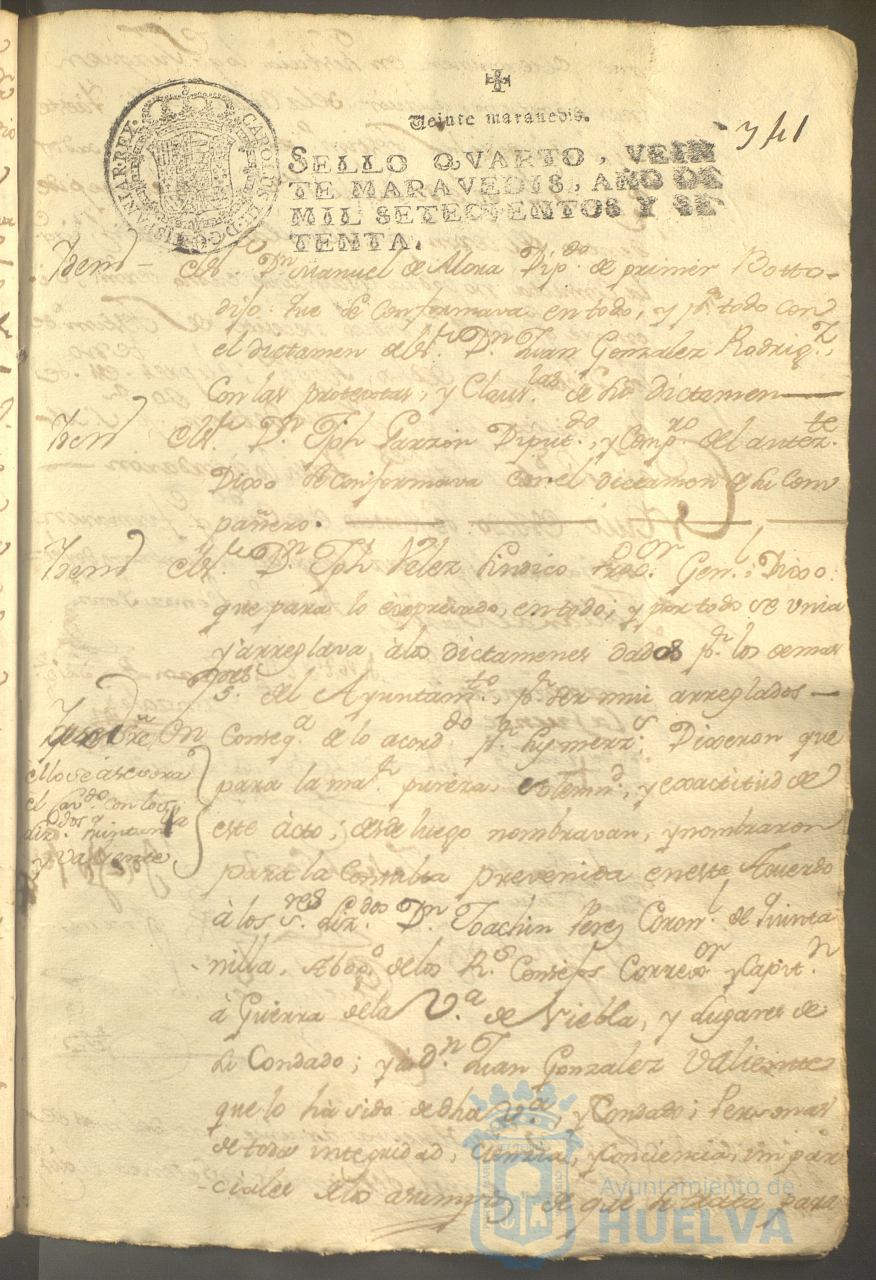 Veinte maravedis.
341
CAROLUS III D G HISPANIAR REX
SELLO QVARTO, VEIN
TE MARAVEDIS, AÑO DE
MIL SETECIENTOS Y SE
TENTA.
Item el Sr. Dn Manuel de Alora Dipdo. de primer Votto
dijo que se conformava en todo, y pr. todo con
el dictamen del Sr. Dn Juan Gonzalez Rodrigz.
Con las protextas, y Claus.las de dho dictamen
Item el Sr. Dn Jph Garzon Diput.do, y Comp.ro del antez.te
Dixo se conformava con el dictamen de su Com
pañero.
Item el Sr. Dn Jph Velez Sindico Proc.or Gen.l; Dixo:
que para lo expresado, en todo, y por todo se unia
y arreglava, à los dictamenes dados pr. los demas
del Ayuntam.to, pr. ser mui arreglados
En Conseq.a de lo acord.do pr. sus merz.s Dixeron que
para la ma.r pureza, solemn.d, y exactitud de
este àcto; desde luego nombravan, y nombraron
para la Consulta prevenida en este Acuerdo
à los S.res Liz.dos Dn Joachin Perez Coron.l de Quinta
nilla, Abog.o de los R.s Consejos Correg.or y Capit.n
à Guerra de la V.a de Niebla, y Lugares de
su Condado; y à Dn Juan Gonzalez Valiente
que lo ha sido de dha V.a, y Condado; Personas
de toda integridad, Ciencia, y Conciencia, impar
ciales à los asumptos de que se trata, para
el con los
Liz.dos Quintanilla
y Valiente
Ayuntamiento de
HUELVA